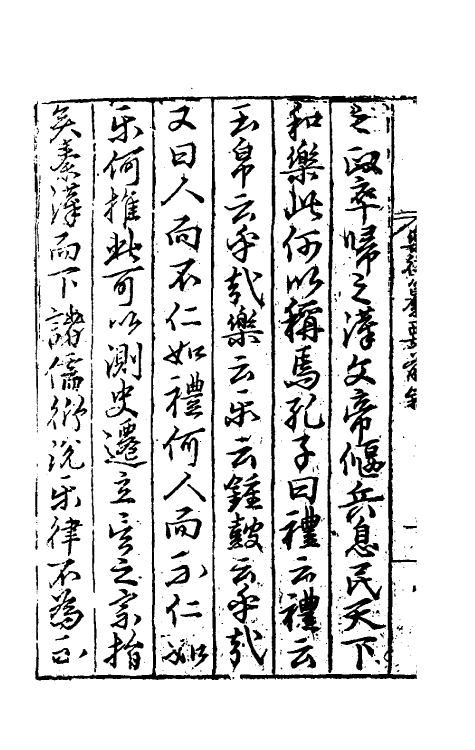 之政卒歸之漢文帝偃兵息民天下
和樂此何以稱焉孔子曰禮云禮云
玉帛云乎哉樂云乐云鍾鼓云乎哉
又曰人而不仁如禮何人而不仁如
乐何推此可以測史遷立言之宗指
矣秦漢而下諸儒衍說乐律不為不